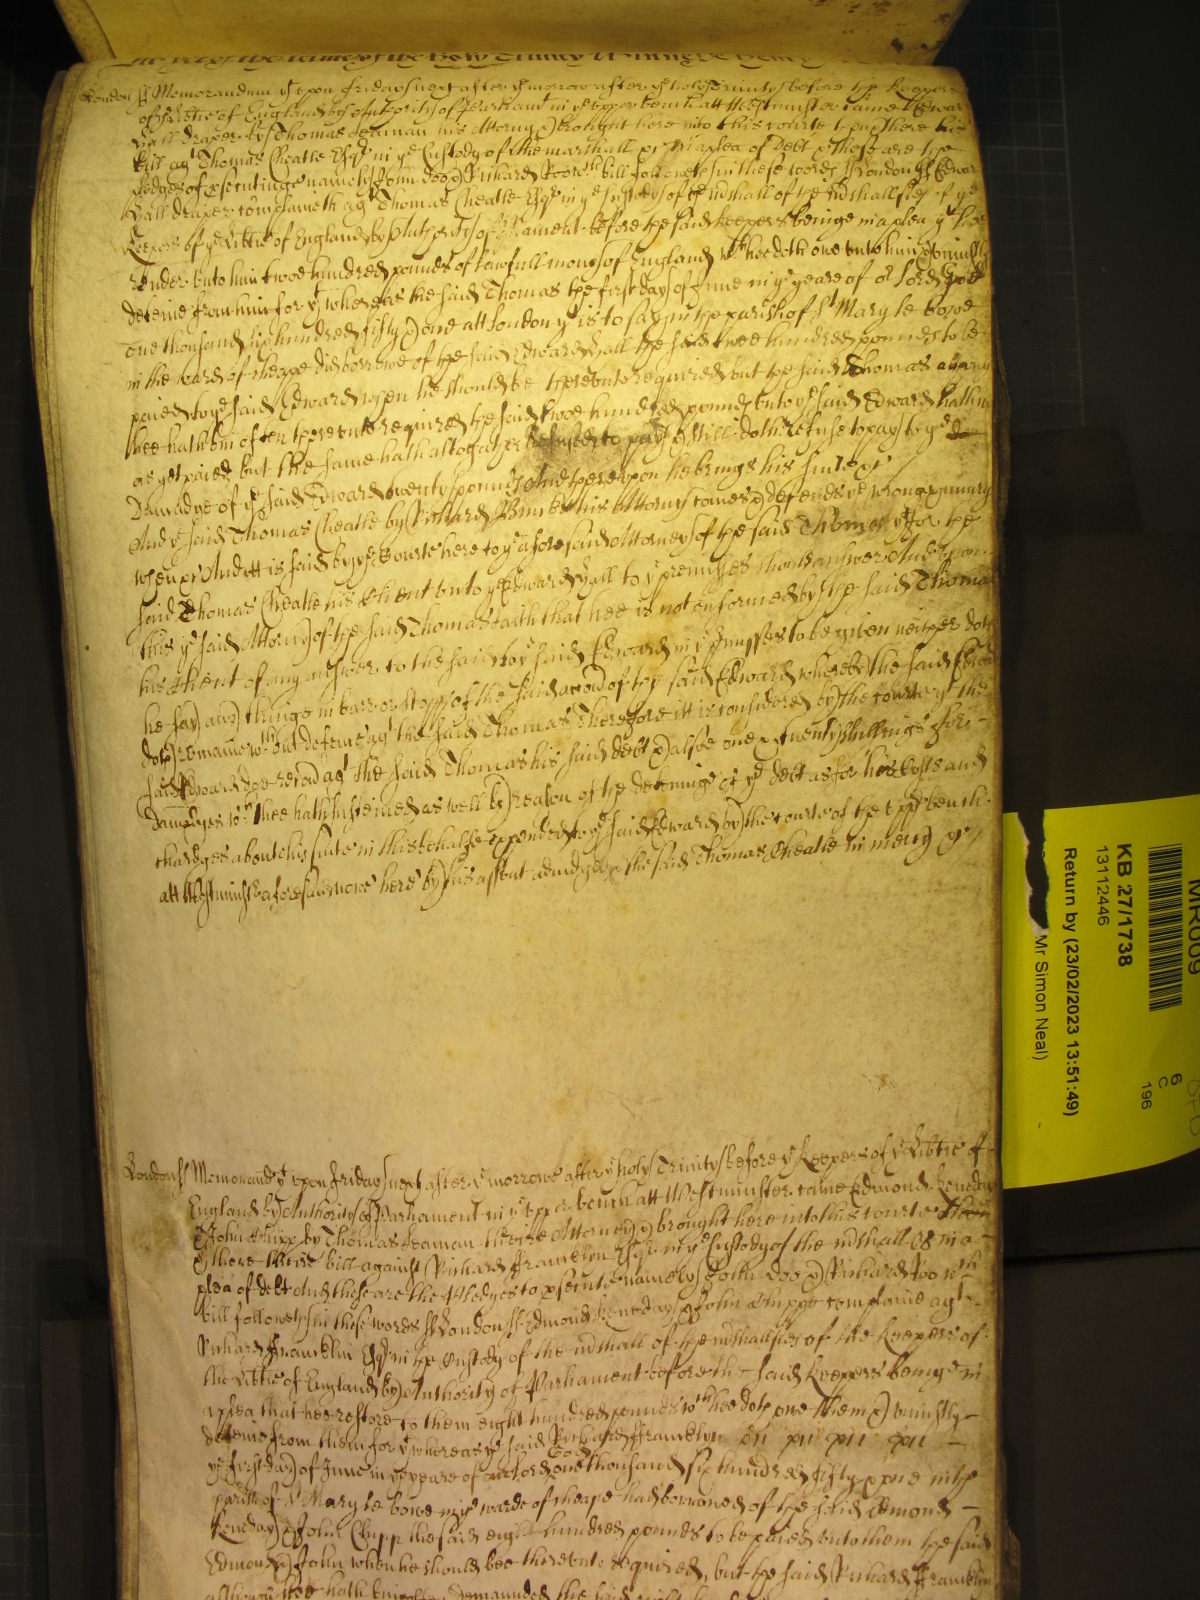 London ss Memorandum yt upon friday next after ye morrow after ye holy Trinity before the Keepers
of ye Libtie of England by Authority of Parliamt in ye upper bench att Westminster came Edward
Hall draper by Thomas Leaman his Attorny & brought here into this Courte then & there his
bill agt Thomas Cheatle Esqr in ye Custody of the marshall &c in a plea of Debt & these are the
pledges of prsecutinge namely John doo & Richard Roo wch bill followeth in these words ss London ss Edward
Hall draper complaineth agt Thomas Cheatle Esqr in ye Custody of the mrshall of the mrshallsey of ye
Keepers of ye Libtie of England by Authority of Parliament before the said Keepers beinge in a plea yt hee
render unto him twoe hundred pounds of lawfull mony of England wch hee doth owe unto him & uniustly
deteine from him for yt whereas the said Thomas the first day of June in ye yeare of or Lord God
one thousand six hundred fifty & one att London yt is to say in the parish of St Mary le bowe
in the ward of Cheape did borrowe of the said Edward Hall the said twoe hundred pounds to be
paied to ye said Edward when he should be thereunto required but the said Thomas although
hee hath bin often thereunto required the said twoe hundred pounds unto ye said Edward hath not
as yet paied but the same hath altogather refused to pay & still doth refuse to pay to ye
Damadge of ye said Edward twenty pounds And thereupon he brings his suite &c
And ye said Thomas Cheatle by Richard his Attorny comes & defends ye wrong & iniury
when &c And itt is said by ye Courte here to ye aforesaid Attorney of the said Thomas yt for the
said Thomas Cheatle his Client unto ye Edward Hall to ye premisses should answer And upon
this ye said Attorny of the said Thomas saith that hee is not enformed by the said Thomas
his Client of any answer to the said to ye said Edward in ye prmisses to be given neither doth
he say any thinge in barr or stopp of the said accon of the said Edward whereby the said Edward
doth remaine wthout defence agt the said Thomas Therefore itt is considered by the Courte yt the
said Edward doe recovr agt the said Thomas his said debt & alsoe one & twenty shillings for
Damadges wch hee hath susteined as well by reason of the deteninge of ye debt as for his costs and
chardges about his suite in this behalfe expended to ye said Edward by the Courte of the upper bench
att Westminstr aforesaid nowe here by his assent adiudged & the said Thomas Cheatle in mercy &c
London ss Memorand yt upon friday next after ye morrowe after ye holy Trinity before ye Keepers of ye Libtie of
England by Authority of Parliament in ye upper bench att Westminster came Edmond Keneday
& John Chipp by Thomas Leaman theire Attorney & brought here into this Courte then
& there theire bill against Richard Francklyn Esqr in ye Custody of the mrshall &c in a
plea of debt And these are the pledges to prsecute namely John doo & Richard Roo wch
bill followeth in these words ss London ss Edmond Keneday & John Chipp complaine agt
Richard Francklin Esqr in the Custody of the mrshall of the mrshallsey of the Keepers of
the Libtie of England by Authority of Parliament before the said Keepers beinge in
a plea that hee restore to them eight hundred pounds wch hee doth owe them & uniustly
deteine from them for yt whereas ye said Richard Francklyn
ye first day of June in ye yeare of our Lord God one thousand six hundred fifty & one in the
parish of St Mary le bowe in ye warde of Cheape had borrowed of the said Edmond
Keneday & John Chipp the said eight hundred pounds to be paied unto them the said
Edmond & John when he should bee thereunto required, but the said Richard Francklin
although hee hath demaunded the said
MR009
KB 27/1738
13112446
Return by (23/02/2023 13:51:49)
Mr Simon Neal)
6
C
196